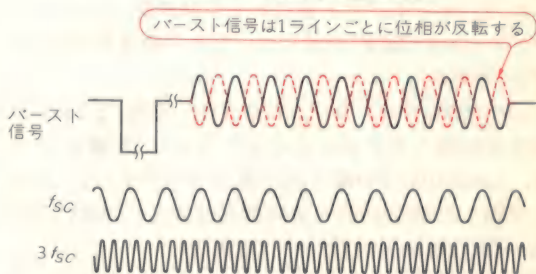 バースト信号は1ラインごとに位相が反転する
バースト
信号
fSC
3fSC